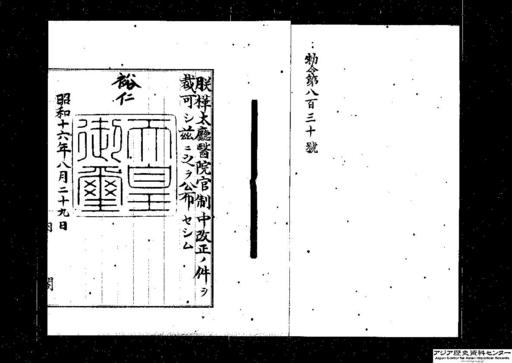 勅令第八百三十號
朕樺太廳醫院官制中改正ノ件ヲ
裁可シ茲ニ之ヲ公布セシム
裕仁
天皇
御璽
昭和十六年八月二十九日
内閣
アジア歴史資料センター
Japan Center for Asian Historical Records